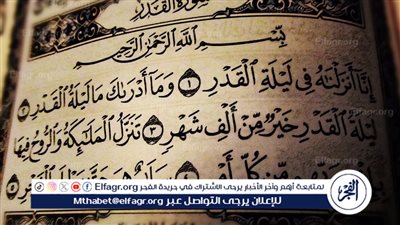 سُورَةُ الْقَدْرِ
بِسْمِ ٱللَّهِ ٱلرَّحْمَٰنِ ٱلرَّحِيمِ
إِنَّآ أَنزَلْنَٰهُ فِى لَيْلَةِ ٱلْقَدْرِ ١ وَمَآ أَدْرَىٰكَ مَا لَيْلَةُ ٱلْقَدْرِ ٢
لَيْلَةُ ٱلْقَدْرِ خَيْرٌ مِّنْ أَلْفِ شَهْرٍ ٣ تَنَزَّلُ ٱلْمَلَٰٓئِكَةُ وَٱلرُّوحُ فِيهَا
مِّن كُلِّ
لمتابعة أهم وآخر الأخبار يرجى الاشتراك في جريدة الفجر Elfagr.org
للإعلان يرجى التواصل عبر Mthabet@elfagr.org
الفجر